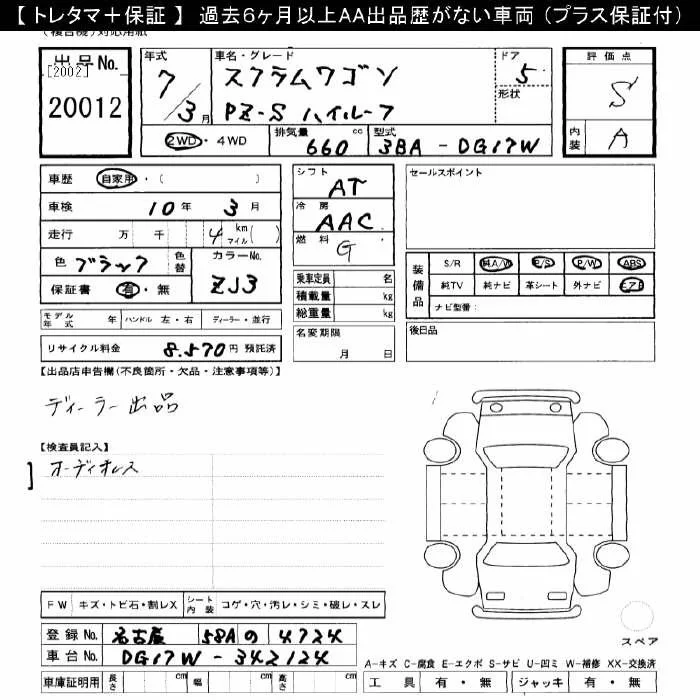 【 トレタマ＋保証 】 過去6ヶ月以上AA出品歴がない車両（プラス保証付）
(複合機)対応用紙
出品No. [2002] 20012
年式 7/3月
車名・グレード スクラムワゴン PZ-S ハイルーフ
ドア 5
形状
2WD・4WD
排気量 660 cc
型式 3BA - DG17W
評価点 S
内装 A
車歴 自家用・( )
車検 10年 3月
走行 万 千 4 km マイル( )
色 ブラック 色替 カラーNo. ZJ3
保証書 有・無
モデル年式 年 ハンドル 左・右 ディーラー・並行
リサイクル料金 8,570円 預託済
シフト AT
冷房 AAC
燃料 G
乗車定員 名
積載量 kg
総重量 kg
名変期限 月 日
セールスポイント
装備品 S/R 純A/W P/S P/W ABS
純TV 純ナビ 革シート 外ナビ エアB
ナビ型番:
後日品
【出品店申告欄(不良箇所・欠品・注意事項等)】
ディーラー出品
【検査員記入】
オーディオレス
FW キズ・トビ石・割レX シート内装 コゲ・穴・汚レ・シミ・破レ・スレ
登録No. 名古屋 58Aの 4724
車台No. DG17W - 342124
車庫証明用 長さ cm 幅 cm 高さ cm
スペア
A-キズ C-腐食 E-エクボ S-サビ U-凹ミ W-補修 XX-交換済
工具 有・無 ジャッキ 有・無